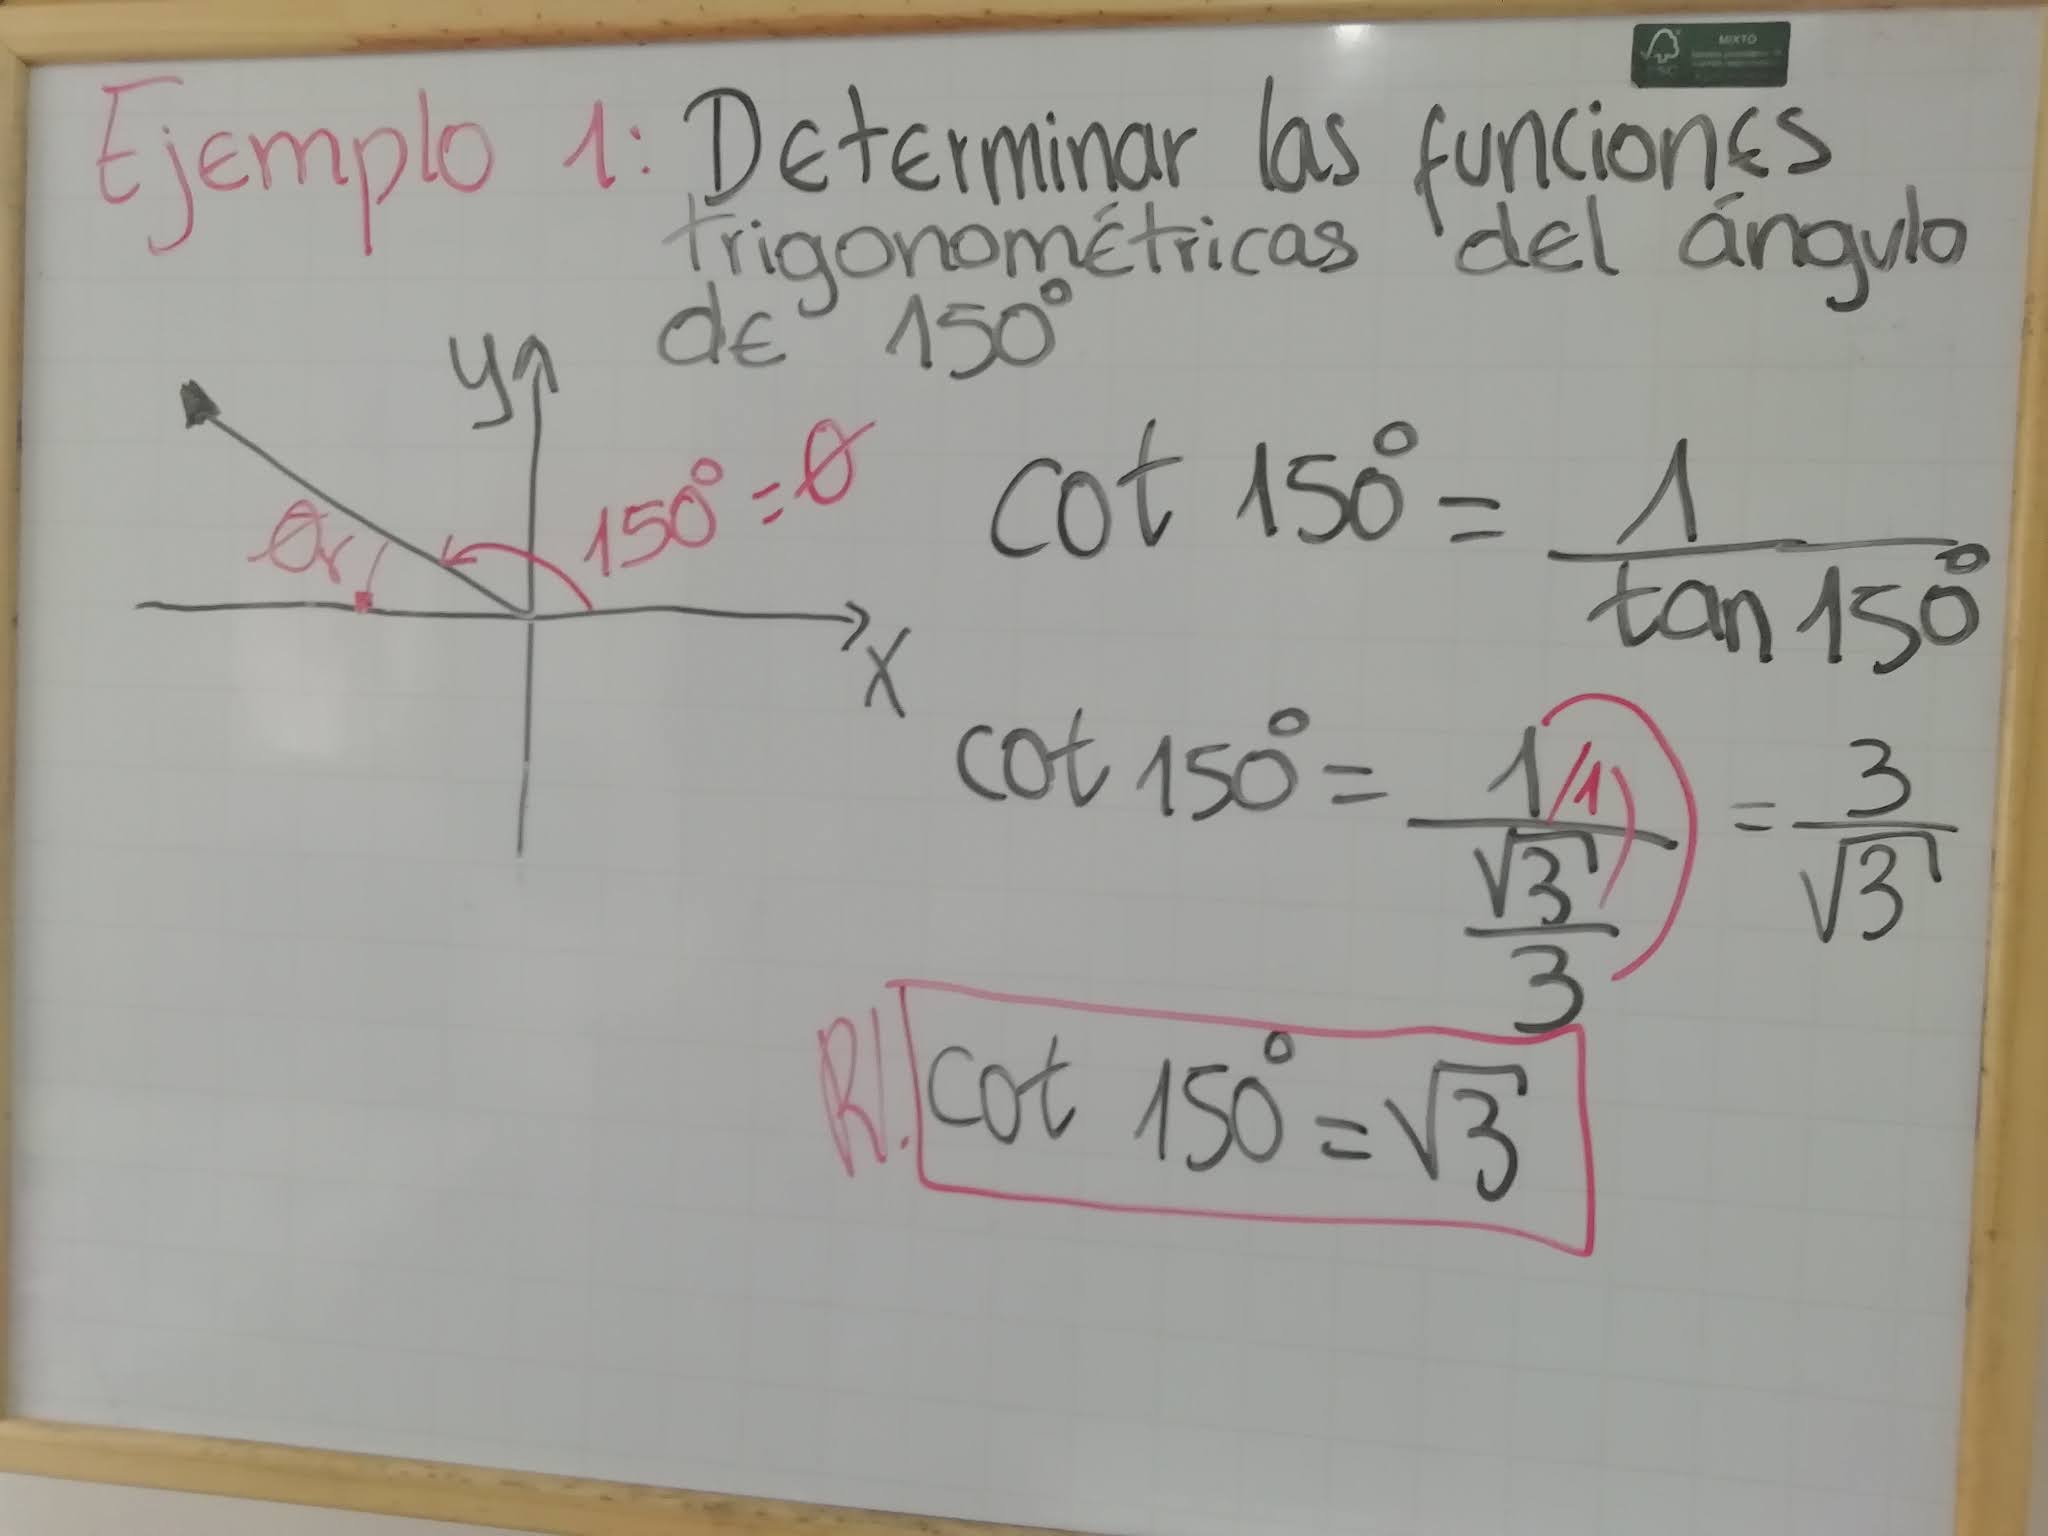 Ejemplo 1: Determinar las funciones
trigonométricas del ángulo
de 150°
y
150° = θ
θr
x
cot 150° = 1 / tan 150°
cot 150° = 1/1 / √3 / 3 = 3 / √3
R/. cot 150° = √3
FSC
MIXTO